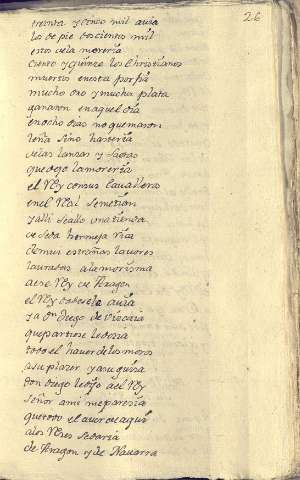 26
treinta y cinco mil auia
los de pie doscientos mil
estos dela moreria
ciento y quinze los christianos
muertos en esta porfia
mucho oro y mucha plata
ganaron en aquel dia
en ocho dias no quemaron
leña sino hasteria
delas lanzas y saetas
que dejo la moreria
el Rey con sus cavalleros
en el Real se metian
y alli se allo una tienda
de seda bermeja Via
de mui estrañas lauores
lauradas ala morisma
aese Rey de Aragon
el Rey dado sela auia
y a don Diego de Viscaia
que partiese le decia
todo el hauer de los moros
a su plazer y a su guisa
don Diego le dijo a el Rey
señor a mi me parezia
que todo el auer de aqui
a los Reies se daria
de Aragon y de Nauarra